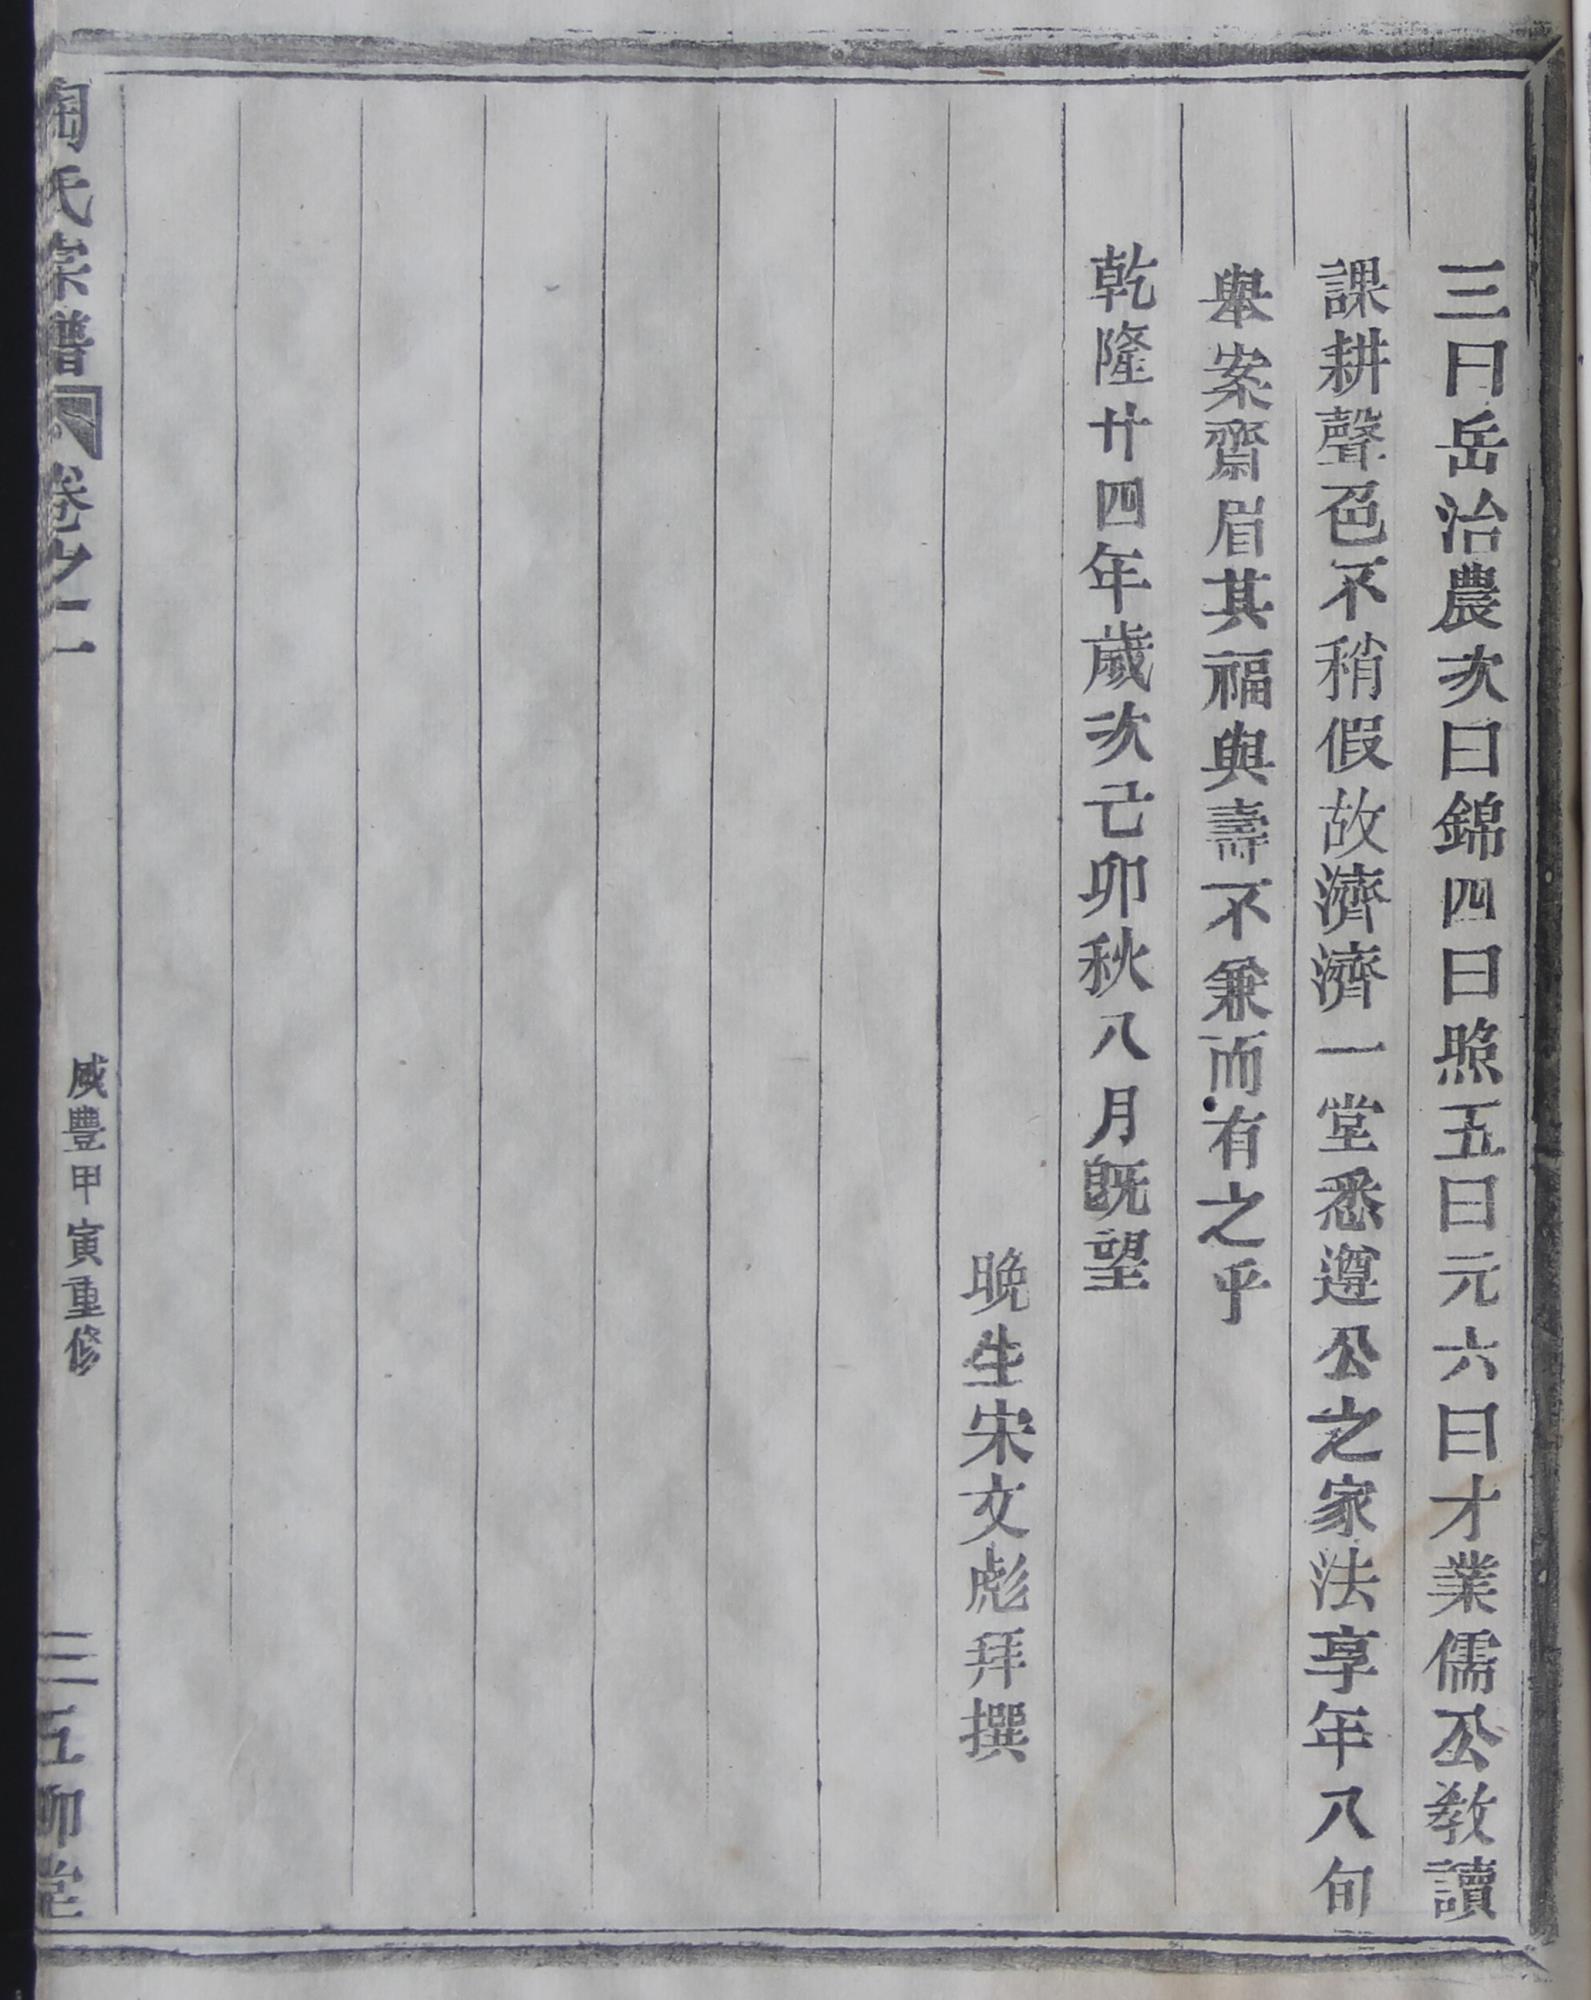 三曰岳治農次曰錦四曰照五曰元六曰才業儒公教讀
課耕聲色不稍假故濟濟一堂悉遵公之家法享年八旬
舉案齊眉其福與壽不兼而有之乎
乾隆廿四年歲次己卯秋八月既望
晚生宋文彪拜撰
陶氏宗譜 卷之二
咸豐甲寅重修
三 五柳堂